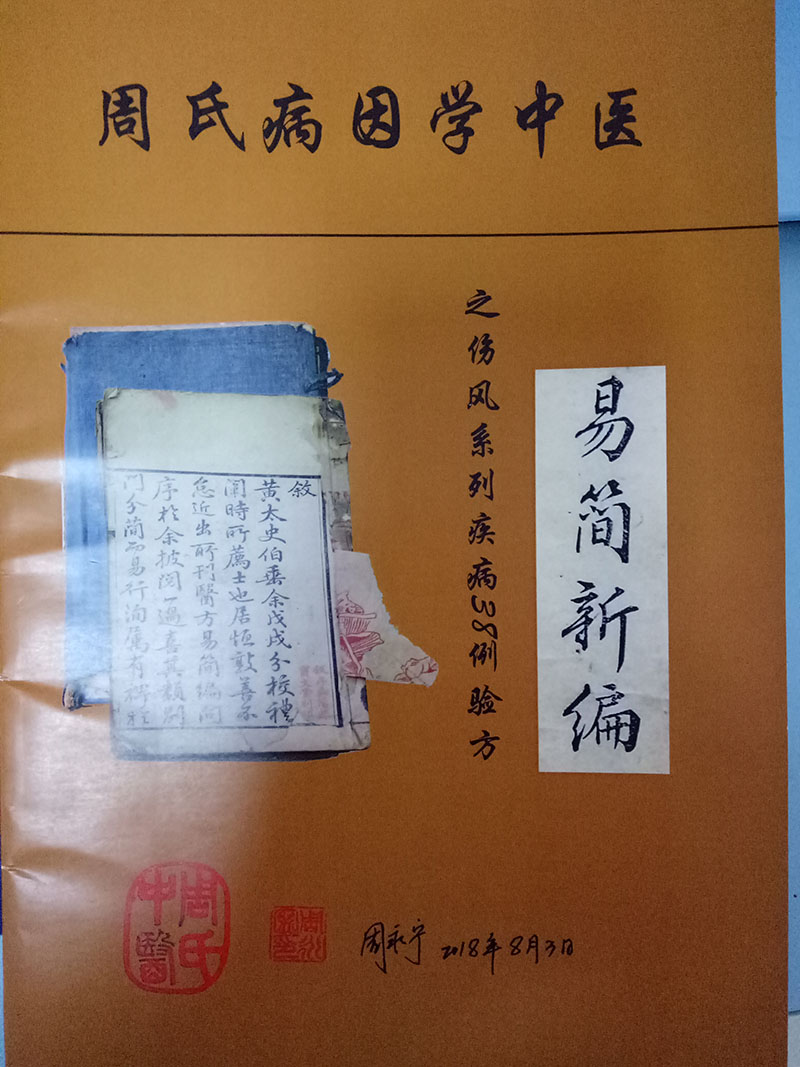 周氏病因学中医
易简新编
之伤风系列疾病
例验方
敘
黃太史伯垂余戊戌分校禮
闈時所薦士也居恒敦善不
怠近出所刊醫方易簡編問
序於余披閱一過喜其類別
門分簡而易行洵屬有裨於
周氏
中醫
周永宁 2018年8月3日